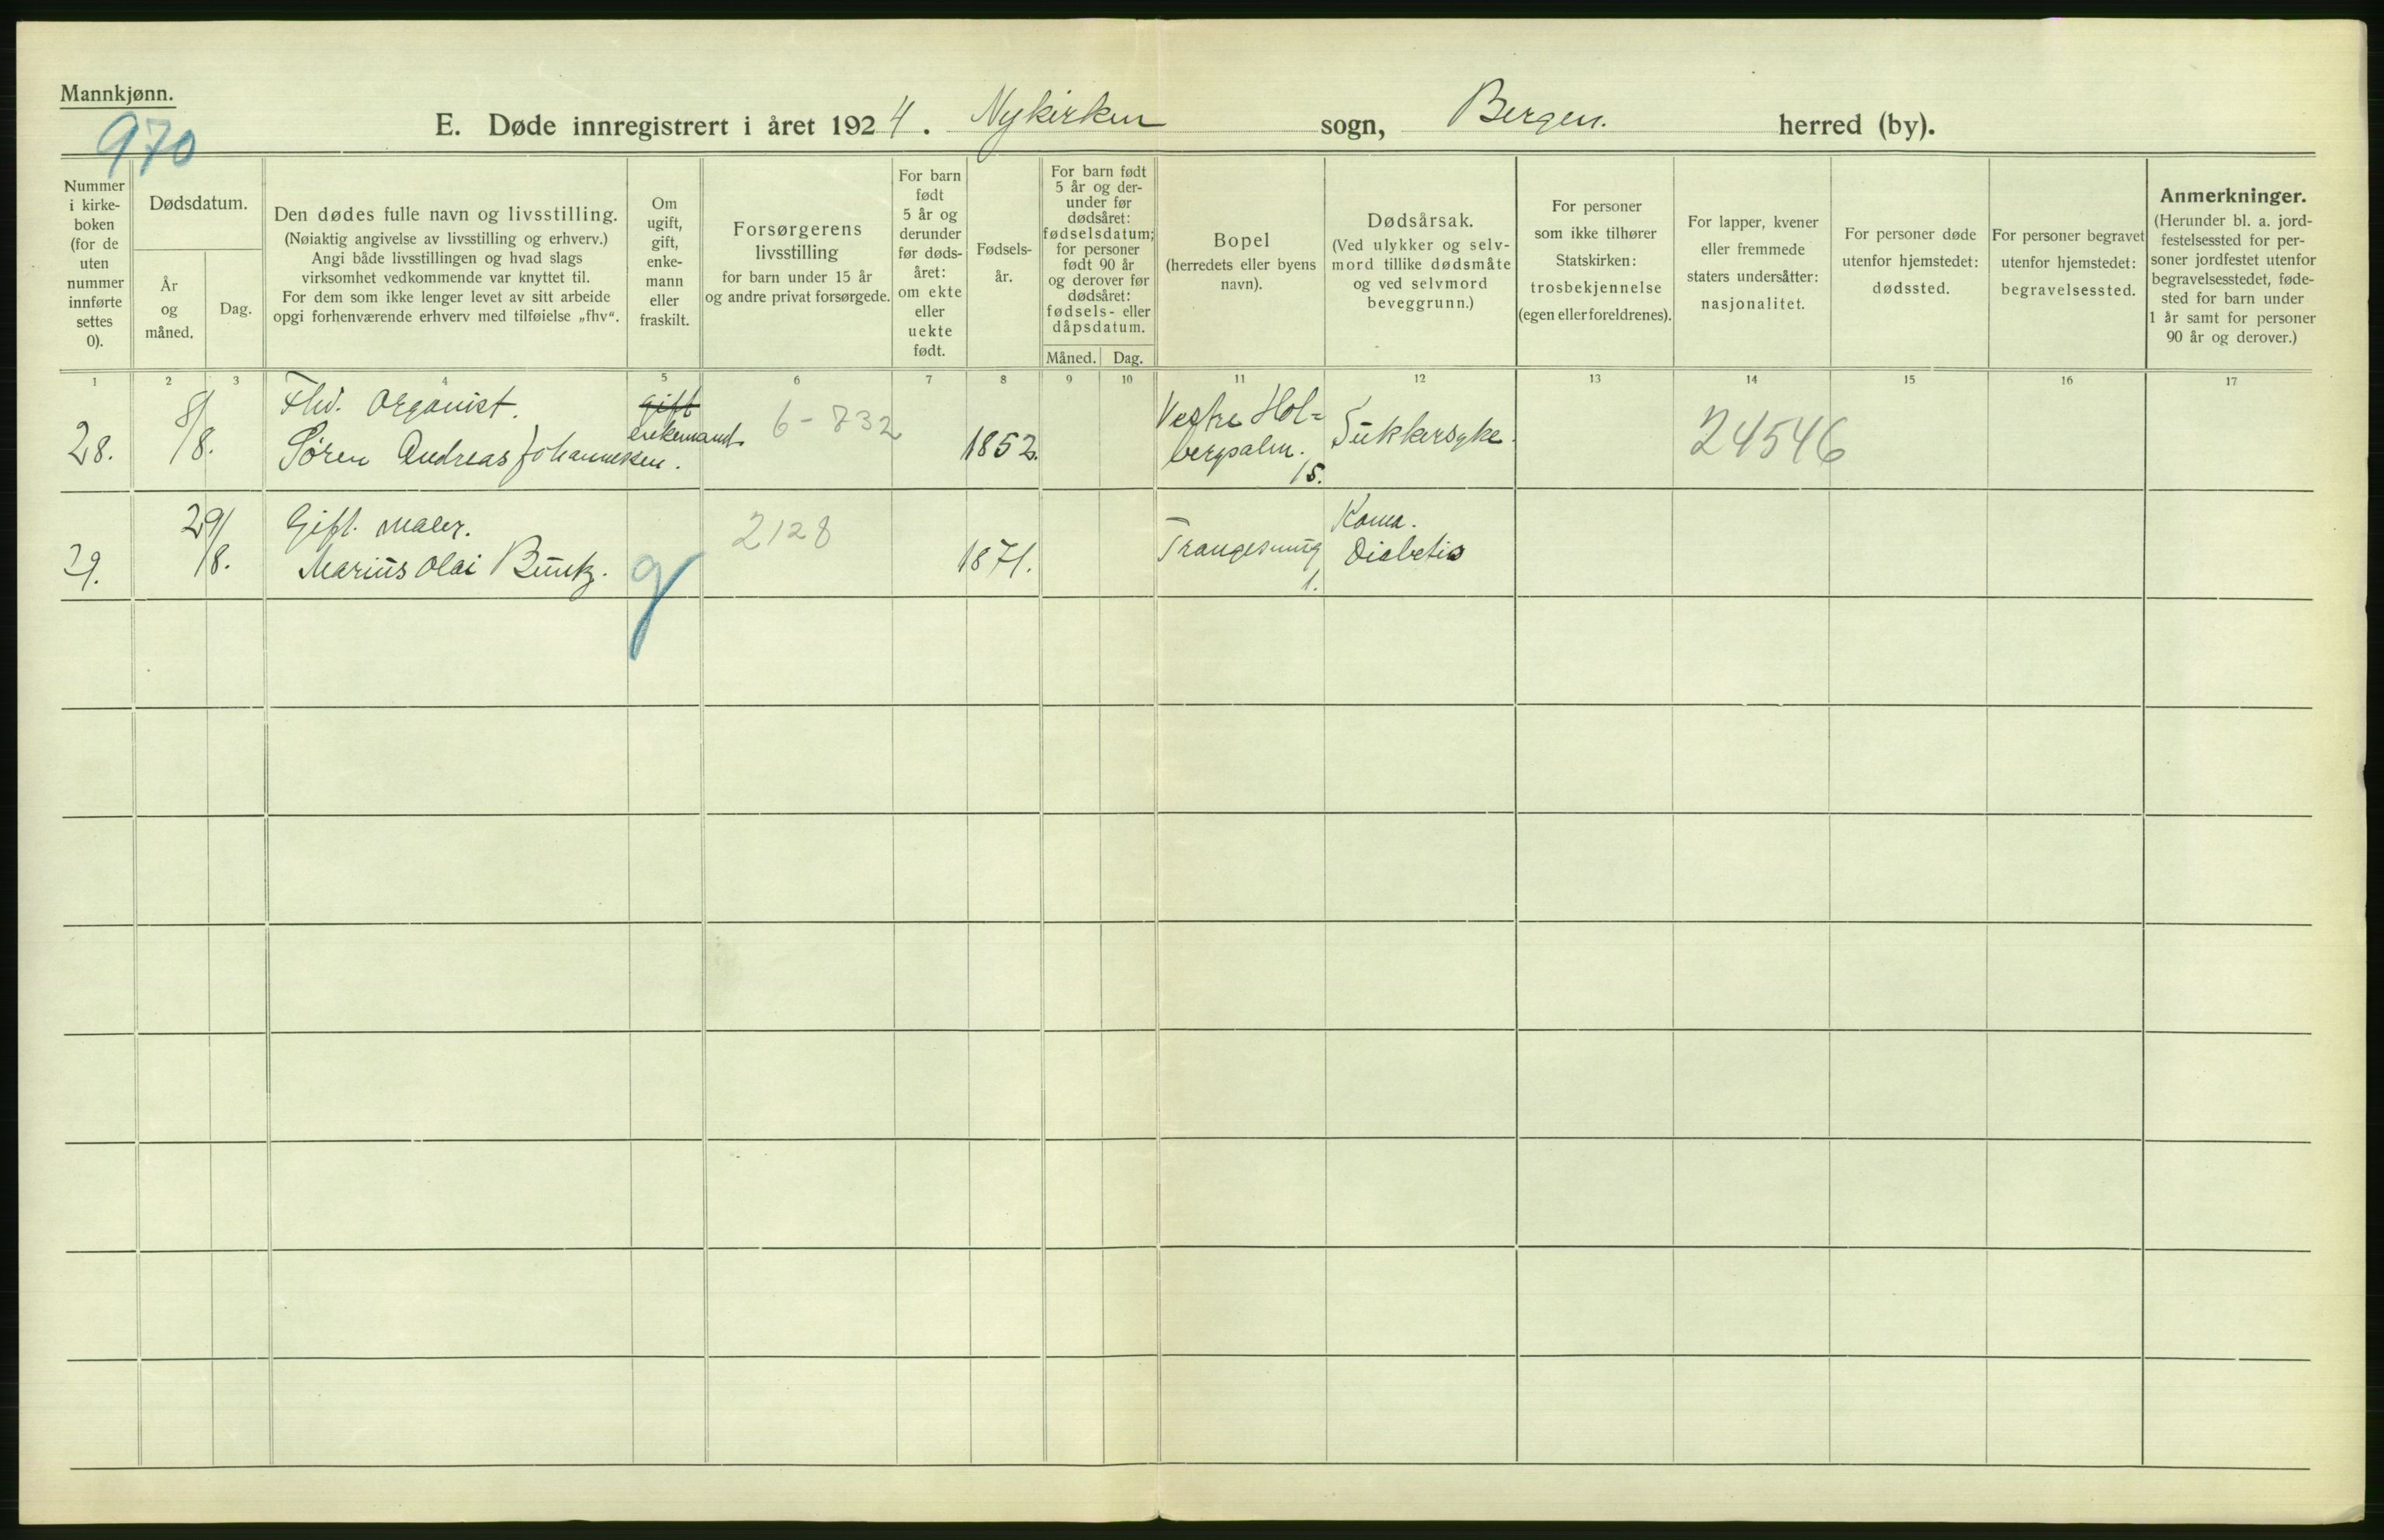 Mannkjønn.
970
E. Døde innregistrert i året 1924. Nykirken sogn, Bergen. herred (by).
Nummer
i kirke-
boken
(for de
uten
nummer
innførte
settes
0).
Dødsdatum.
År
og
måned.
Dag.
Den dødes fulle navn og livsstilling.
(Nøiaktig angivelse av livsstilling og erhverv.)
Angi både livsstillingen og hvad slags
virksomhet vedkommende var knyttet til.
For dem som ikke lenger levet av sitt arbeide
opgi forhenværende erhverv med tilføielse „fhv“.
Om
ugift,
gift,
enke-
mann
eller
fraskilt.
Forsørgerens
livsstilling
for barn under 15 år
og andre privat forsørgede.
For barn
født
5 år og
derunder
før døds-
året:
om ekte
eller
uekte
født.
Fødsels-
år.
For barn født
5 år og der-
under før
dødsåret:
fødselsdatum;
for personer
født 90 år
og derover før
dødsåret:
fødsels- eller
dåpsdatum.
Måned. Dag.
Bopel
(herredets eller byens
navn).
Dødsårsak.
(Ved ulykker og selv-
mord tillike dødsmåte
og ved selvmord
beveggrunn.)
For personer
som ikke tilhører
Statskirken:
trosbekjennelse
(egen eller foreldrenes).
For lapper, kvener
eller fremmede
staters undersåtter:
nasjonalitet.
For personer døde
utenfor hjemstedet:
dødssted.
For personer begravet
utenfor hjemstedet:
begravelsessted.
Anmerkninger.
(Herunder bl. a. jord-
festelsessted for per-
soner jordfestet utenfor
begravelsesstedet, føde-
sted for barn under
1 år samt for personer
90 år og derover.)
1 2 3 4 5 6 7 8 9 10 11 12 13 14 15 16 17
28.
8/8.
Fhv. Organist.
Søren Andreas Johannesen.
gift
enkemand.
6-832
1852.
Vestre Hol=
bergsalm.
15.
Sukkersyke.
24546
29.
29/8.
Gift. maler.
Marius Olai Buntz.
g
2128
1871.
Trangesmug
1.
Koma.
Diabetis